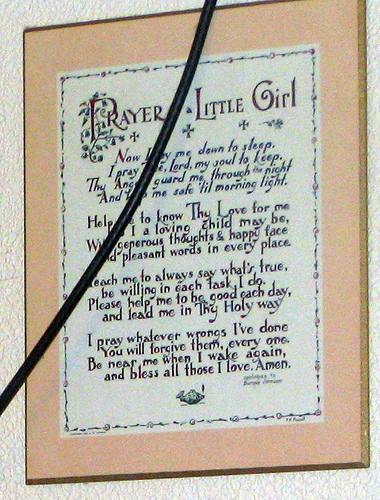 PRAYER a LITTLE Girl
Now me down to sleep,
I pray Lord, my soul to keep,
Thy guard me through the night
And me safe 'til morning light.
Help to know Thy Love for me
I a loving child may be,
generous thoughts & happy face
pleasant words in every place.
Teach me to always say what's true,
be willing in each task I do.
Please help me to be good each day,
and lead me in Thy Holy way
I pray whatever wrongs I've done
You will forgive them, every one.
Be near me when I wake again,
and bless all those I love. Amen.